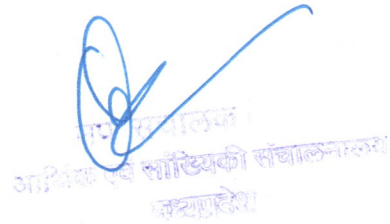 संचालक
आर्थिक एवं सांख्यिकी संचालनालय
मध्यप्रदेश